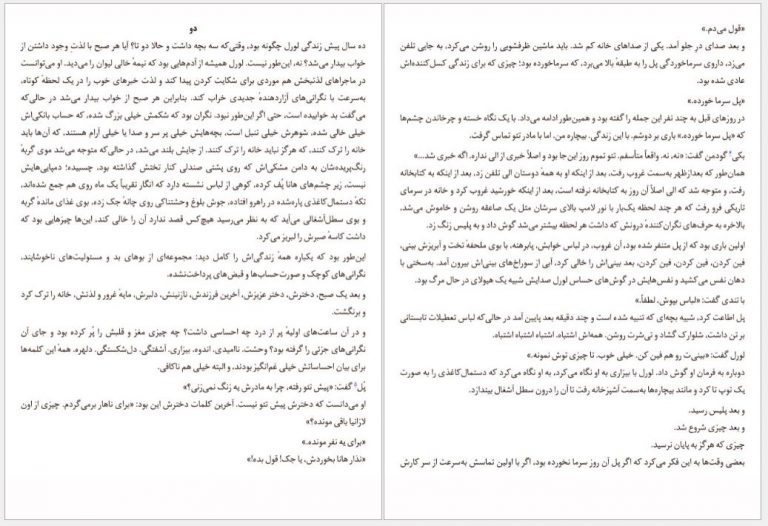 دو
ده سال پیش زندگی لورل چگونه بود، وقتی‌که سه بچه داشت و حالا دو تا؟ آیا هر صبح با لذتِ وجود داشتن از
خواب بیدار می‌شد؟ نه، این‌طور نیست. لورل همیشه از آدم‌هایی بود که نیمهٔ خالی لیوان را می‌دید. او می‌توانست
در ماجراهای لذتبخش هم موردی برای شکایت کردن پیدا کند و لذت خبرهای خوب را در یک لحظهٔ کوتاه،
به‌سرعت با نگرانی‌های آزاردهندهٔ جدیدی خراب کند. بنابراین هر صبح از خواب بیدار می‌شد در حالی‌که
می‌گفت بد خوابیده است، حتی اگر این‌طور نبود. نگران بود که شکمش خیلی بزرگ شده، که حساب بانکی‌اش
خیلی خالی شده، شوهرش خیلی تنبل است، بچه‌هایش خیلی پر سر و صدا یا خیلی آرام هستند، که آن‌ها باید
خانه را ترک کنند، که هرگز نباید خانه را ترک کنند. از جایش بلند می‌شد، در حالی‌که متوجه می‌شد موی گربهٔ
رنگ‌پریده‌شان به دامن مشکی‌اش که روی پشتی صندلی کنار تختش گذاشته بود، چسبیده؛ دمپایی‌هایش
نیست، زیر چشم‌های هانا پُف کرده، کوهی از لباس نشسته دارد که انگار تقریباً یک ماه روی هم جمع شده‌اند،
تکهٔ دستمال‌کاغذی پاره‌شده در راهرو افتاده، جوش بلوغ وحشتناکی روی چانهٔ جک زده، بوی غذای ماندهٔ گربه
و بوی سطل‌آشغالی می‌آید که به نظر می‌رسید هیچ‌کس قصد ندارد آن را خالی کند، این‌ها چیزهایی بود که
داشت کاسهٔ صبرش را لبریز می‌کرد.
این‌طور بود که یکباره همهٔ زندگی‌اش را کامل دید: مجموعه‌ای از بوهای بد و مسئولیت‌های ناخوشایند،
نگرانی‌های کوچک و صورت‌حساب‌ها و قبض‌های پرداخت‌نشده.
و بعد یک صبح، دخترش، دختر عزیزش، آخرین فرزندش، نازنینش، دلبرش، مایهٔ غرور و لذتش، خانه را ترک کرد
و برنگشت.
و در آن ساعت‌های اولیهٔ پر از درد چه احساسی داشت؟ چه چیزی مغز و قلبش را پُر کرده بود و جای آن
نگرانی‌های جزئی را گرفته بود؟ وحشت. ناامیدی. اندوه. بیزاری. آشفتگی. دل‌شکستگی. دلهره. همهٔ این کلمه‌ها
برای بیان احساساتش خیلی غم‌انگیز بودند، و البته خیلی هم ناکافی.
پُل۵ گفت: «پیش تئو رفته، چرا به مادرش یه زنگ نمی‌زنی؟»
او می‌دانست که دخترش پیش تئو نیست. آخرین کلمات دخترش این بود: «برای ناهار برمی‌گردم. چیزی از اون
لازانیا باقی مونده؟»
«برای یه نفر مونده.»
«نذار هانا بخوردش، یا جک! قول بده!»
«قول می‌دم.»
و بعد صدای درِ جلو آمد. یکی از صداهای خانه کم شد. باید ماشین ظرفشویی را روشن می‌کرد، به جایی تلفن
می‌زد، داروی سرماخوردگی پل را به طبقهٔ بالا می‌برد، که سرماخورده بود؛ چیزی که برای زندگی کسل‌کننده‌اش
عادی شده بود.
«پل سرما خورده.»
در روزهای قبل به چند نفر این جمله را گفته بود و همین‌طور ادامه می‌داد. با یک نگاه خسته و چرخاندن چشم‌ها
که «پل سرما خورده.» باری بر دوشم. با این زندگی. بیچاره من. اما با مادر تئو تماس گرفت.
بکی گودمن گفت: «نه، نه. واقعاً متأسفم. تئو تموم روز این‌جا بود و اصلاً خبری از الی نداره. اگه خبری شد...»
همان‌طور که بعدازظهر به‌سمت غروب رفت، بعد از اینکه او به همهٔ دوستان الی تلفن زد، بعد از اینکه به کتابخانه
رفت، و متوجه شد که الی اصلاً آن روز به کتابخانه نرفته است، بعد از اینکه خورشید غروب کرد و خانه در سرمای
تاریکی فرو رفت که هر چند لحظه یک‌بار با نور لامپ بالای سرشان مثل یک صاعقه روشن و خاموش می‌شد،
بالاخره به حرف‌های نگران‌کنندهٔ درونش که داشت هر لحظه بیشتر می‌شد گوش داد و به پلیس زنگ زد.
اولین باری بود که از پل متنفر شده بود، آن غروب، در لباس خوابش، پابرهنه، با بوی ملحفهٔ تخت و آبریزش بینی،
فین کردن، فین کردن، فین کردن، بعد بینی‌اش را خالی کرد، آبی از سوراخ‌های بینی‌اش بیرون آمد. به‌سختی با
دهان نفس می‌کشید و نفس‌هایش در گوش‌های حساس لورل صدایش شبیه یک هیولای در حال مرگ بود.
با تندی گفت: «لباس بپوش. لطفاً.»
پل اطاعت کرد، شبیه بچه‌ای که تنبیه شده است و چند دقیقه بعد پایین آمد در حالی‌که لباس تعطیلات تابستانی
بر تن داشت، شلوارک گشاد و تی‌شرت روشن. همه‌اش اشتباه. اشتباه اشتباه اشتباه.
لورل گفت: «بینی‌ت رو هم فین کن. خیلی خوب. تا چیزی توش نمونه.»
دوباره به فرمان او گوش داد. لورل با بیزاری به او نگاه می‌کرد، به او نگاه می‌کرد که دستمال‌کاغذی را به صورت
یک توپ تا کرد و مانند بیچاره‌ها به‌سمت آشپزخانه رفت تا آن را درون سطل آشغال بیندازد.
و بعد پلیس رسید.
و بعد چیزی شروع شد.
چیزی که هرگز به پایان نرسید.
بعضی وقت‌ها به این فکر می‌کرد که اگر پل آن روز سرما نخورده بود، اگر با اولین تماسش به‌سرعت از سر کارش